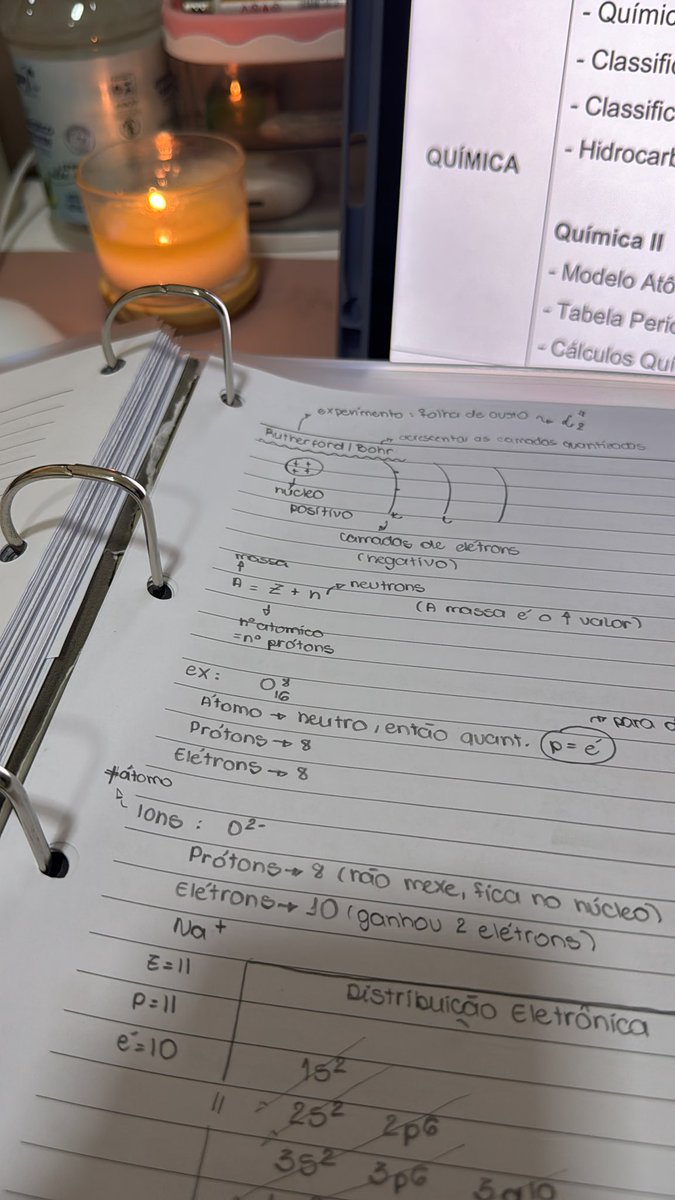 - Químic
- Classific
- Classific
- Hidrocarb
QUÍMICA
Química II
- Modelo Atô
- Tabela Perió
- Cálculos Quí
experimento: folha de ouro
Rutherford/Bohr acrescentar as camadas quantizadas
++
++
núcleo
positivo
camadas de elétrons
(negativo)
massa
A = Z + n → neutrons
(A massa é o ↑ valor)
nº atomico
= nº prótons
ex: O 8
16
Átomo → neutro, então quant. p = e-
para
Prótons → 8
Elétrons → 8
≠ átomo
Ions: O2-
Prótons → 8 (não mexe, fica no núcleo)
Elétrons → 10 (ganhou 2 elétrons)
Na+
Z=11
p=11
e-=10
Distribuição Eletrônica
1s2
2s2 2p6
3s2 3p6 3d10